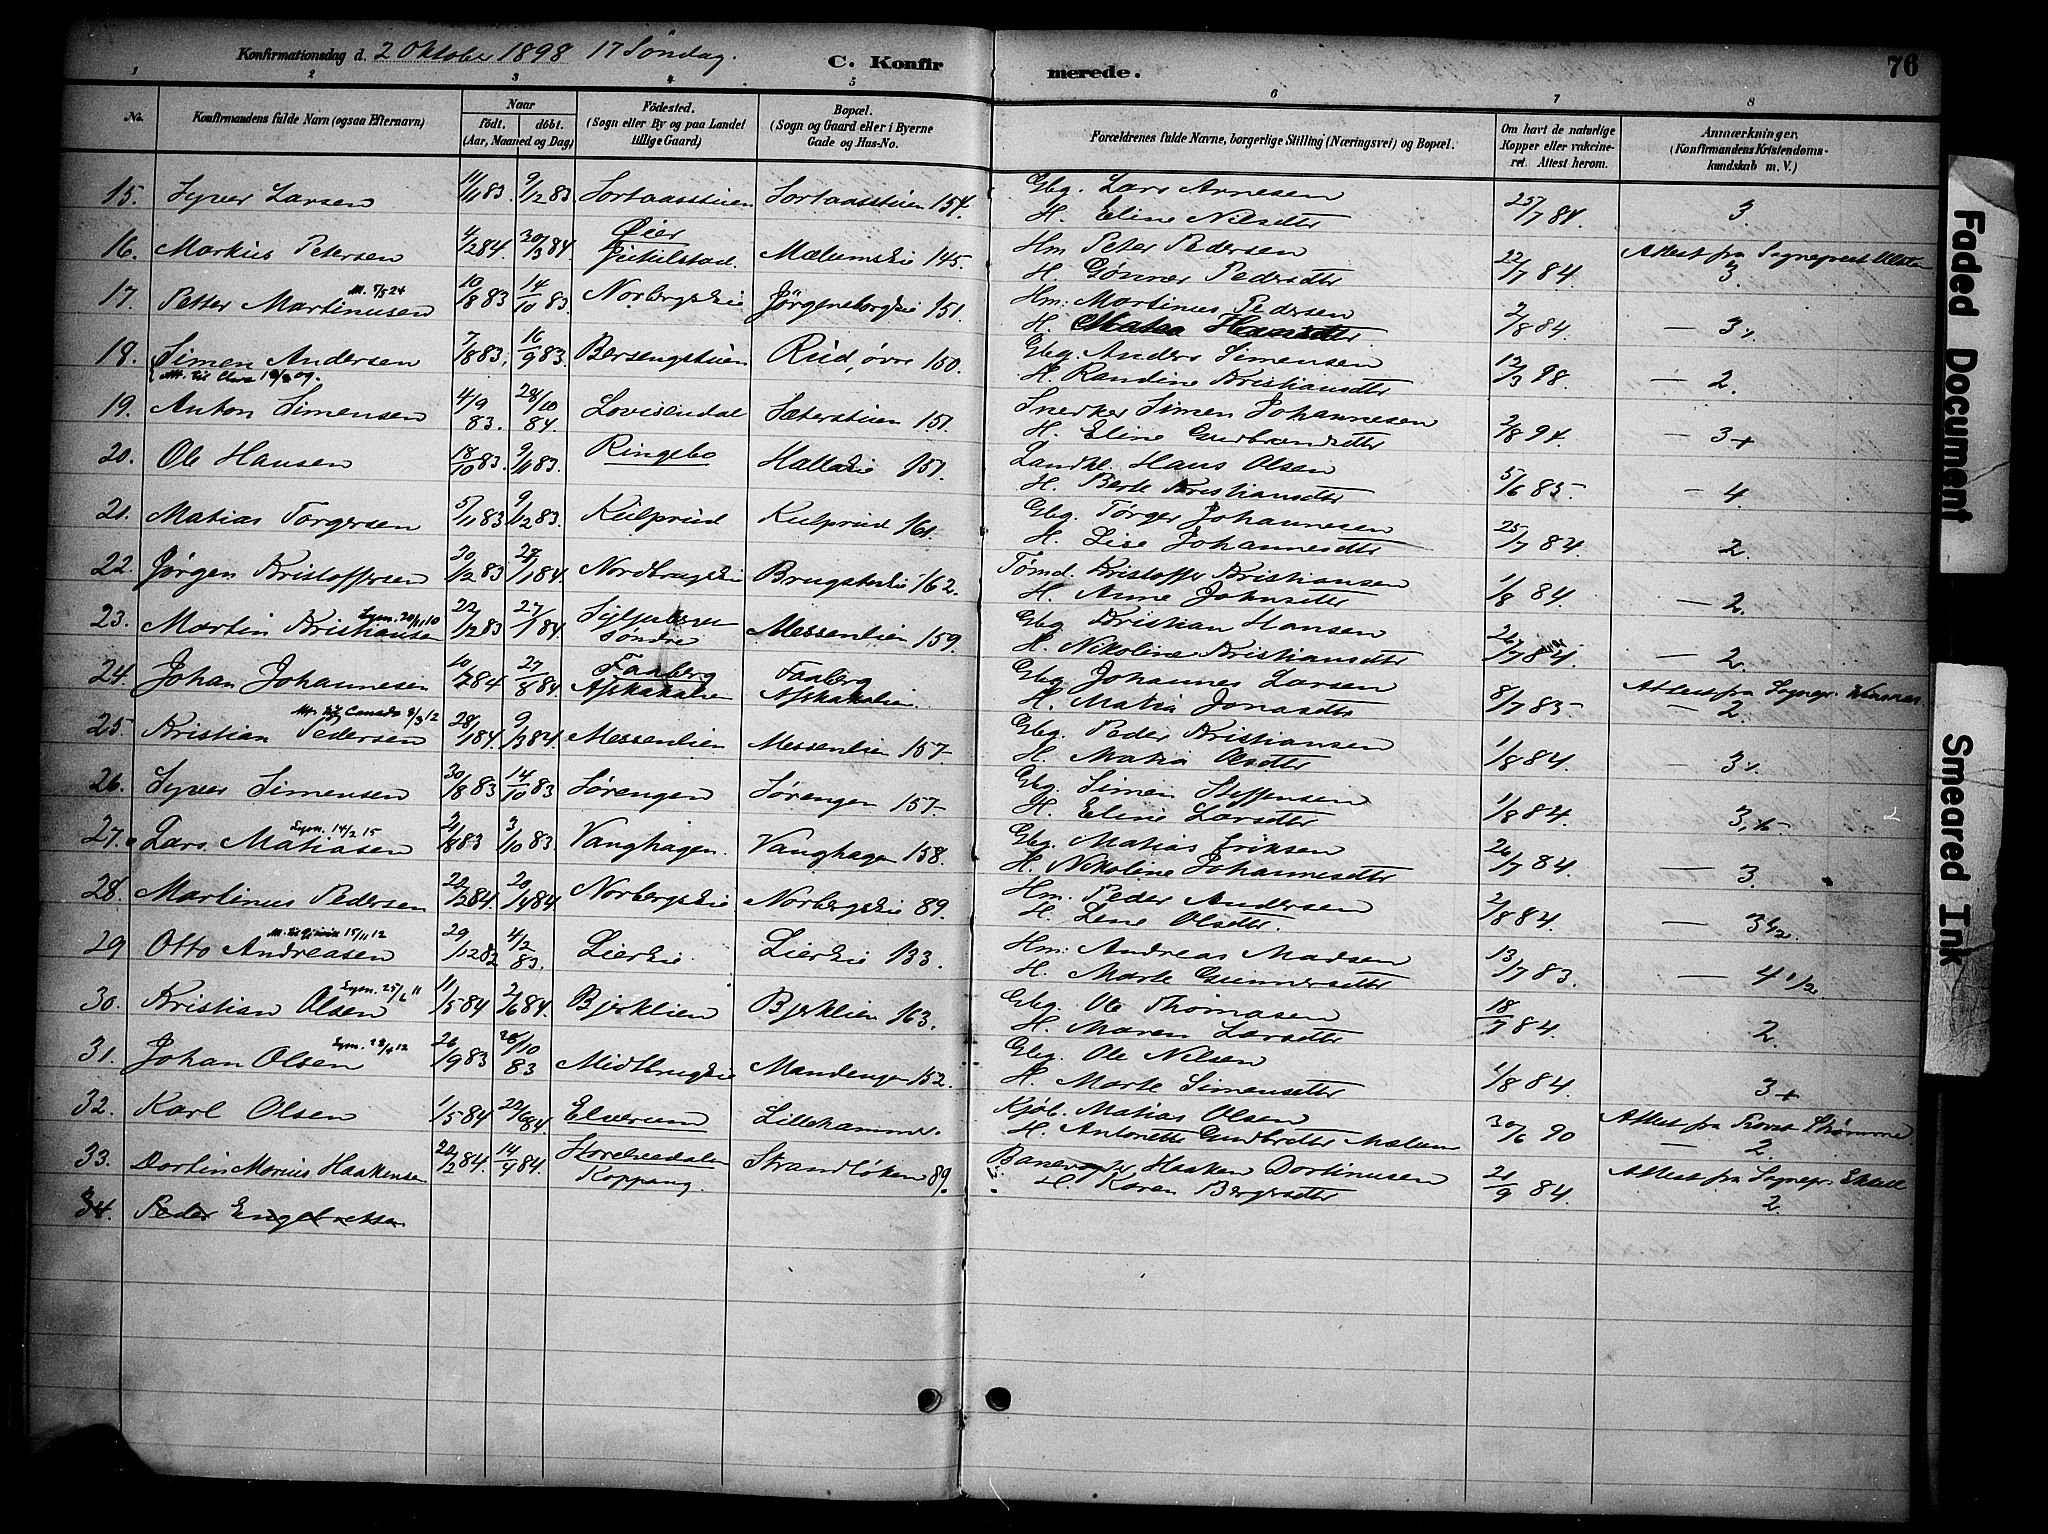 Konfirmationsdag d. 2 Oktober 1898 17 Søndag.
C. Konfirmerede.
76
1 2 3 4 5 6 7 8
No.
Konfirmandens fulde Navn (ogsaa Efternavn)
Naar
født. døbt.
(Aar, Maaned og Dag)
Fødested.
(Sogn eller By og paa Landet
tillige Gaard)
Bopæl.
(Sogn og Gaard eller i Byerne
Gade og Hus-No.
Forældrenes fulde Navne, borgerlige Stilling (Næringsvei) og Bopæl.
Om havt de naturlige
Kopper eller vakcine-
ret. Attest herom.
Anmærkninger.
(Konfirmandens Kristendoms-
kundskab m. V.)
15. Syver Larsen 11/11 83 9/12 83 Sortaasstuen Sortaasstuen 154. Gbg. Lars Arnesen
H. Eline Nilsdtr 25/7 84. 3
16. Markus Petersen 4/2 84 30/3 84 Øier Mælumseie 145. Hm Peter Pedersen
H. Gønner Pedersdtr 22/7 84. Attest fra Sogneprest
3.
17. Petter Martinusen 10/8 83 14/10 83 Norbergseie Jørgenborgseie 151. Hm: Martinus Pedersen
M. 7/5 24
H. 2/8 84. — 3+
18. Simen Andersen 7/8 83. 16/9 83 Bersengstuen Rud, øvre 150. Gbg. Anders Simensen
H. Randine Kristiansdtr 12/3 98. — 2.
19. Anton Simensen 4/9 83. 28/10 84. Lovisendal Sæterstuen 151. Snerker Simen Johannesen
H. Eline Gudbrandsdtr 2/8 94. — 3+
20. Ole Hansen 18/10 83. 9/11 83. Ringebo 151. Landhl. Hans Olsen
H. Berte Kristiansdtr 5/6 85. — 4.
21. Matias Torgersen 5/11 83 9/12 83. Kulprud Kulprud 161. Gbg. Torger Johannesen
H. Lise Johannesdtr 25/7 84. — 2.
22. Jørgen Kristoffersen 20/12 83 27/1 84. Nordbrugseie 162. Tømd. Kristoffer Kristiansen
H. Anne Johnsdtr 1/8 84. — 2.
23. Martin Kristiansen 22/12 83 27/1 84. Søndre Messenlien 159. Gbg Kristian Hansen
H. Nikoline Kristiansdtr 26/7 84. — 2
24. Johan Johannesen 10/7 84 27/8 84 Faaberg Faaberg Gbg Johannes Larsen
H. Matia Jonasdtr 8/7 85. Attest fra Sognepr.
— 2.
25. Kristian Pedersen 28/1 84. 9/3 84. Messenlien Messenlien 157. Gbg. Peder Kristiansen
M. til Canada 8/3 12
H. Matia Olsdtr 1/8 84. 3+
26. Syver Simensen 30/8 83 14/10 83 Sørengen Sørengen 157. Gbg. Simen Steffensen
H. Eline Larsdtr 1/8 84. 3+
27. Lars Matiasen 21/8 83 3/10 83. Vanghagen. Vanghagen 158. Gbg. Matias Eriksen
H. Nikoline Johannesdtr 26/7 84. 3.
28. Martinus Pedersen 20/4 84. Norbergseie. Norbergseie 89. Hm. Peder Andersen
H. Lene Olsdtr. 2/8 84. — 3 1/2.
29 Otto Andreasen 29/12 82 4/2 83. Lierseie. Lierseie 133. Hm: Andreas Madsen
H. Marte Gunnersdtr 13/7 83. — 4 1/2
30. Kristian Olsen 11/5 84 2/6 84. Bjerklien Bjerklien 163. Gbg. Ole Thomasen
H. Maren Larsdtr 18/7 84. 2.
31. Johan Olsen 26/9 83 28/10 83 Midtbrugseie Mandengen 152. Gbg. Ole Nilsen
H. Marte Simensdtr 1/8 84. 3+
32. Karl Olsen 1/5 84 22/6 84. Elverum Lillehammer. Kjøb. Matias Olsen
H. Antonette Gudbrdtr Mælum 30/6 90 Attest fra Provst Strømme
— 2.
33. Dortin Marius Haakensen 22/2 84. 14/4 84. Koppang. Strandløkken 89. Banevogter Haaken Dortinusen
H. Karen Bergersdtr 21/9 84. Attest fra Sognepr.
2.
34. Peder Engebretsen
Faded Document
Smeared Ink